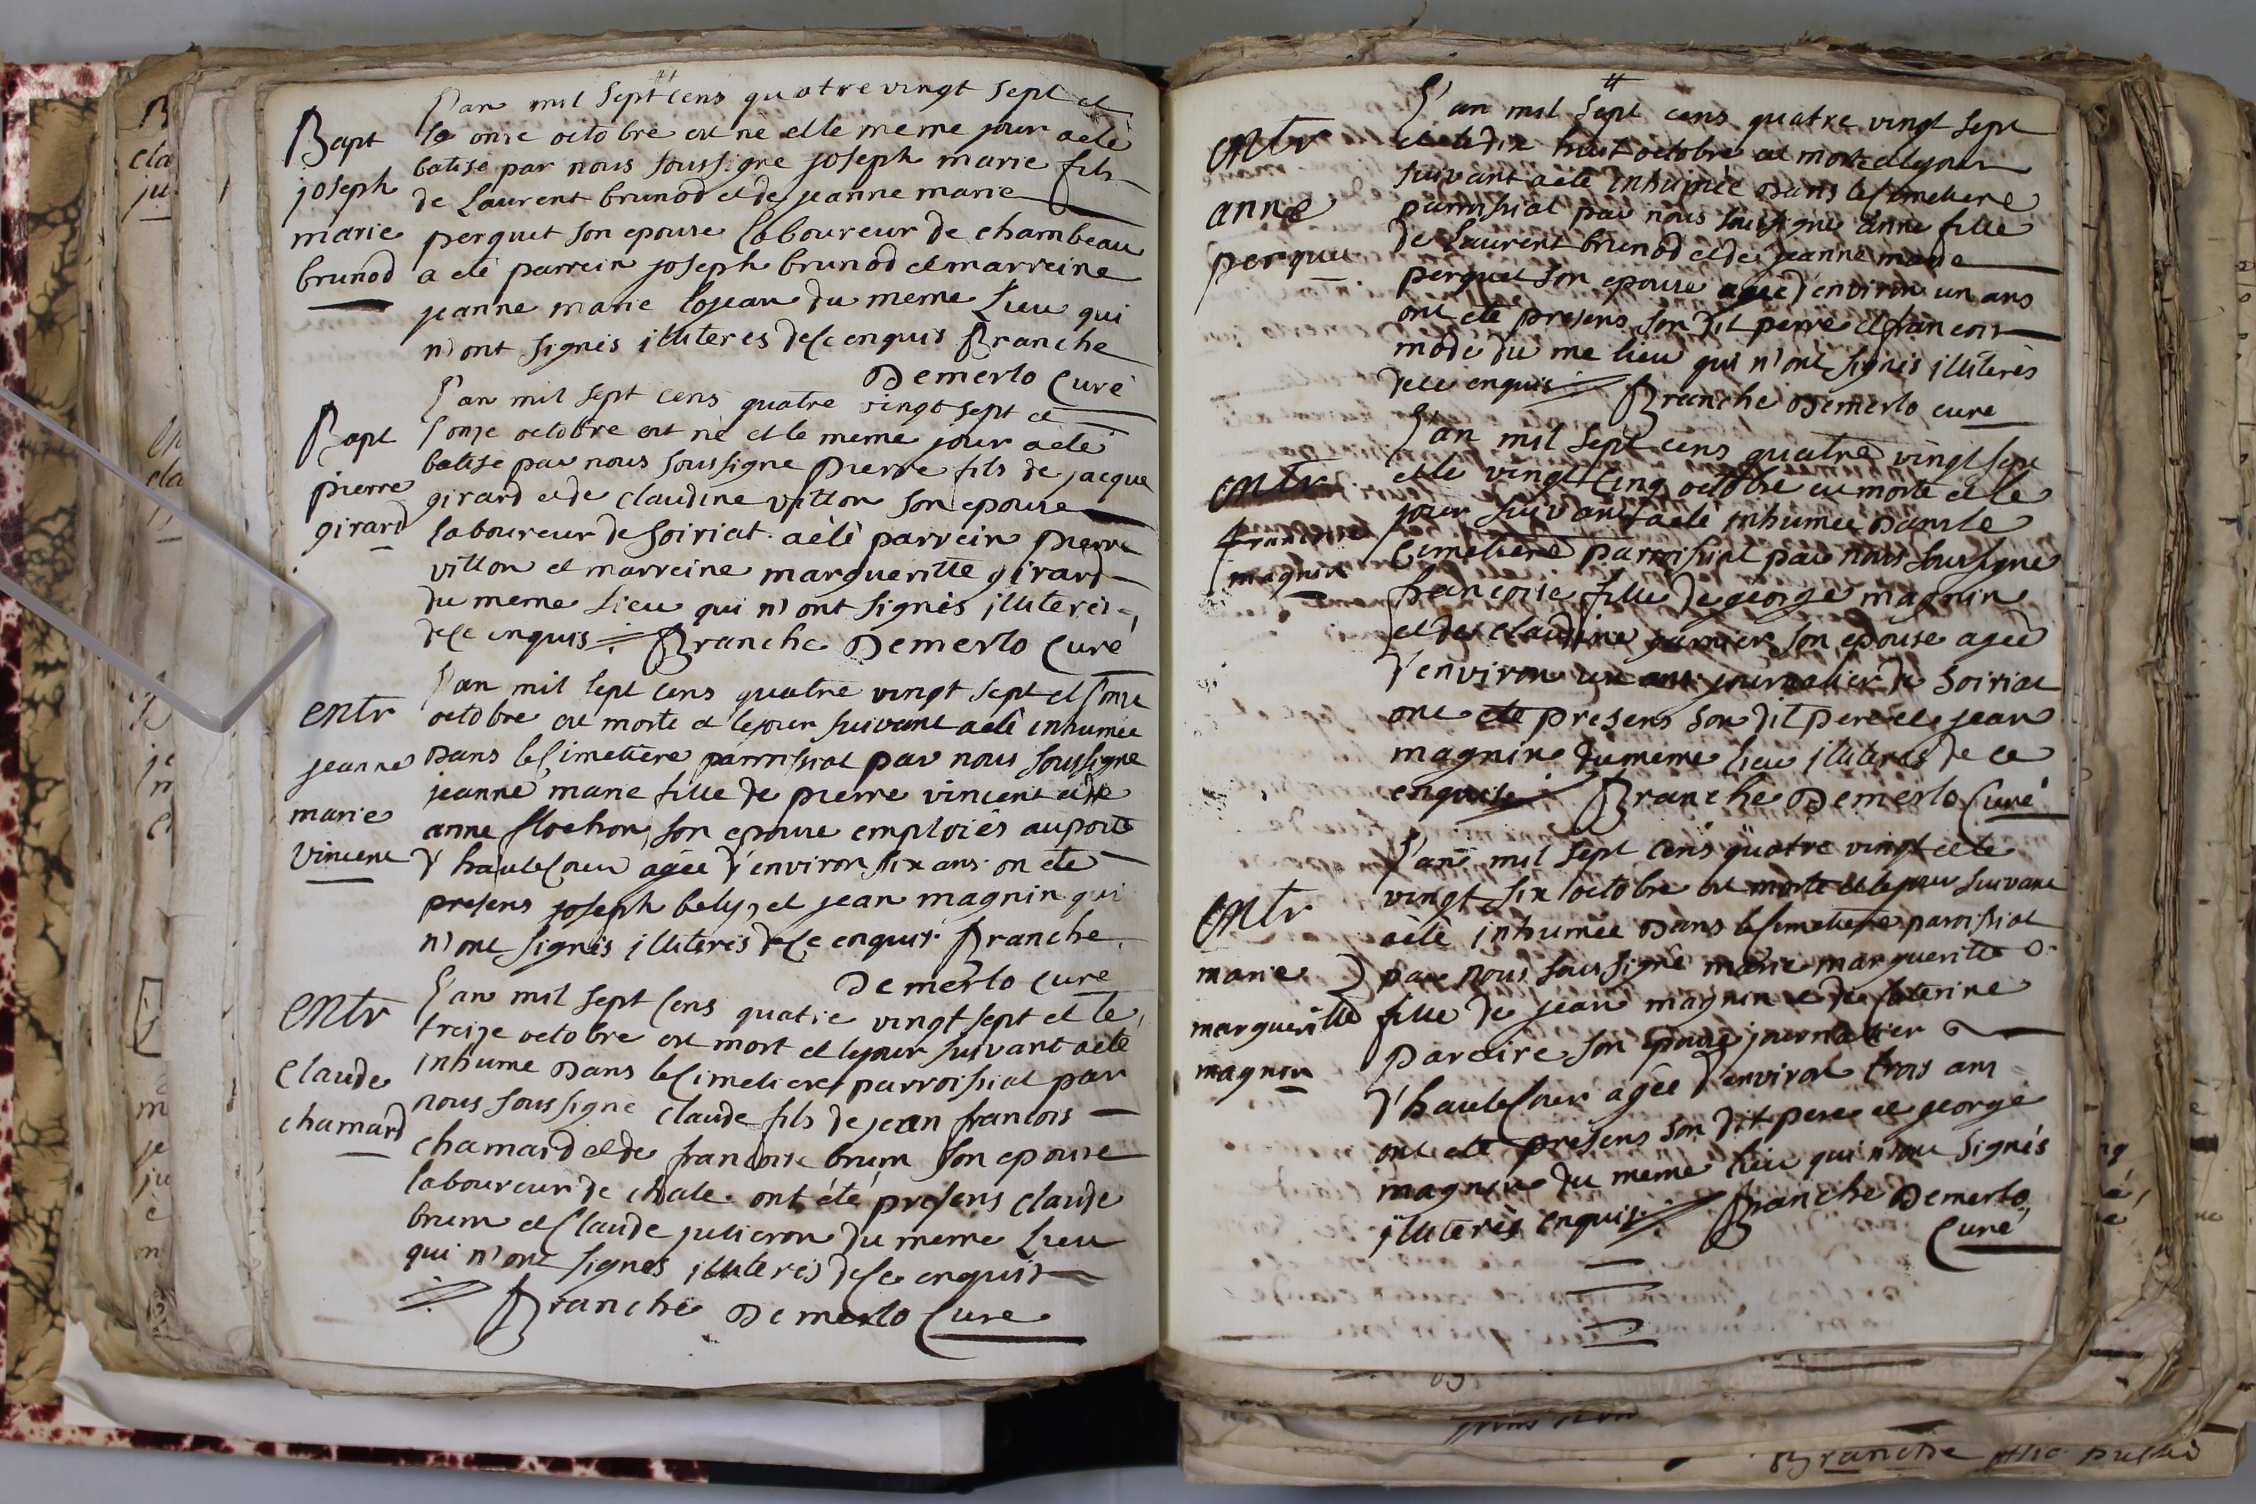 Bapt
joseph
marie
brunod
L'an mil sept cens quatre vingt sept et
le onze octobre est ne et le meme jour a eté
batisé par nous soussigné joseph marie fils
de Laurent brunod et de jeanne marie
perquet son epouse laboureur de chambeau
a eté parrein joseph brunod et marreine
jeanne marie lojean du meme Lieu qui
n'ont signés illiteres de ce enquis Branche
Demerlo Curé
Bapt
pierre
girard
L'an mil sept cens quatre vingt sept et
l'onze octobre est né et le meme jour a eté
batisé par nous soussigne pierre fils de jacque
girard et de claudine vitton son epouse
laboureur de soiriat a eté parrein pierre
vitton et marreine margueritte girard
du meme Lieu qui n'ont signés illiterés
de ce enquis Branche Demerlo Curé
entr
jeanne
marie
vincent
L'an mil sept cens quatre vingt sept et l'onze
octobre est morte et le jour suivant a eté inhumée
dans le Cimetiere parroissial par nous soussigne
jeanne marie fille de pierre vincent et de
anne flochon son epouse emploiés au port
d'hauteCour agée d'environ six ans on eté
presens joseph bely et jean magnin qui
n'ont signés illiterés de ce enquis Branche
Demerlo Cure
entr
Claude
chamard
L'an mil sept Cens quatre vingt sept et le
treize octobre est mort et le jour suivant a eté
inhume dans le Cimetiere parroissial par
nous soussigne claude fils de jean francois
chamard et de francoise brum son epouse
laboureur de chale ont été presens claude
brum et Claude julieron du meme Lieu
qui n'ont signés illiterés de ce enquis
Branche Demerlo Cure
entr
anne
perquet
L'an mil sept cens quatre vingt sept
et le dix huit octobre est morte et le jour
suivant a eté inhumée dans le Cimetiere
parroissial par nous soussigné anne fille
de Laurent brunod et de jeanne marie
perquet son epouse agée d'environ un ans
ont eté presens son dit perre et francois
mode du me lieu qui n'ont signés illiterés
de ce enquis Branche Demerlo cure
entr
francoise
magnin
L'an mil sept cens quatre vingt sept
et le vingt Cinq octobre est morte et le
jour suivant a eté inhumée dans le
Cimetiere parroissial par nous soussigne
francoise fille de george magnin
et de claudine garnier son epouse agée
d'environ un ans journalier de soiriat
ont eté presens son dit pere et jean
magnin du meme lieu illiterés de ce
enquis Branche Demerlo Curé
entr
marie
margueritte
magnon
L'an mil sept cens quatre vingt et le
vingt six octobre est morte et le jour suivant
a eté inhumée dans le Cimetiere paroissial
par nous soussigné marie margueritte
fille de jean magnin et de Caterine
pareire son epouse journalier
d'hauteCour agée d'environ trois ans
ont eté presens son dit pere et george
magnin du meme lieu qui n'ont signés
illiterés enquis Branche Demerlo
Curé